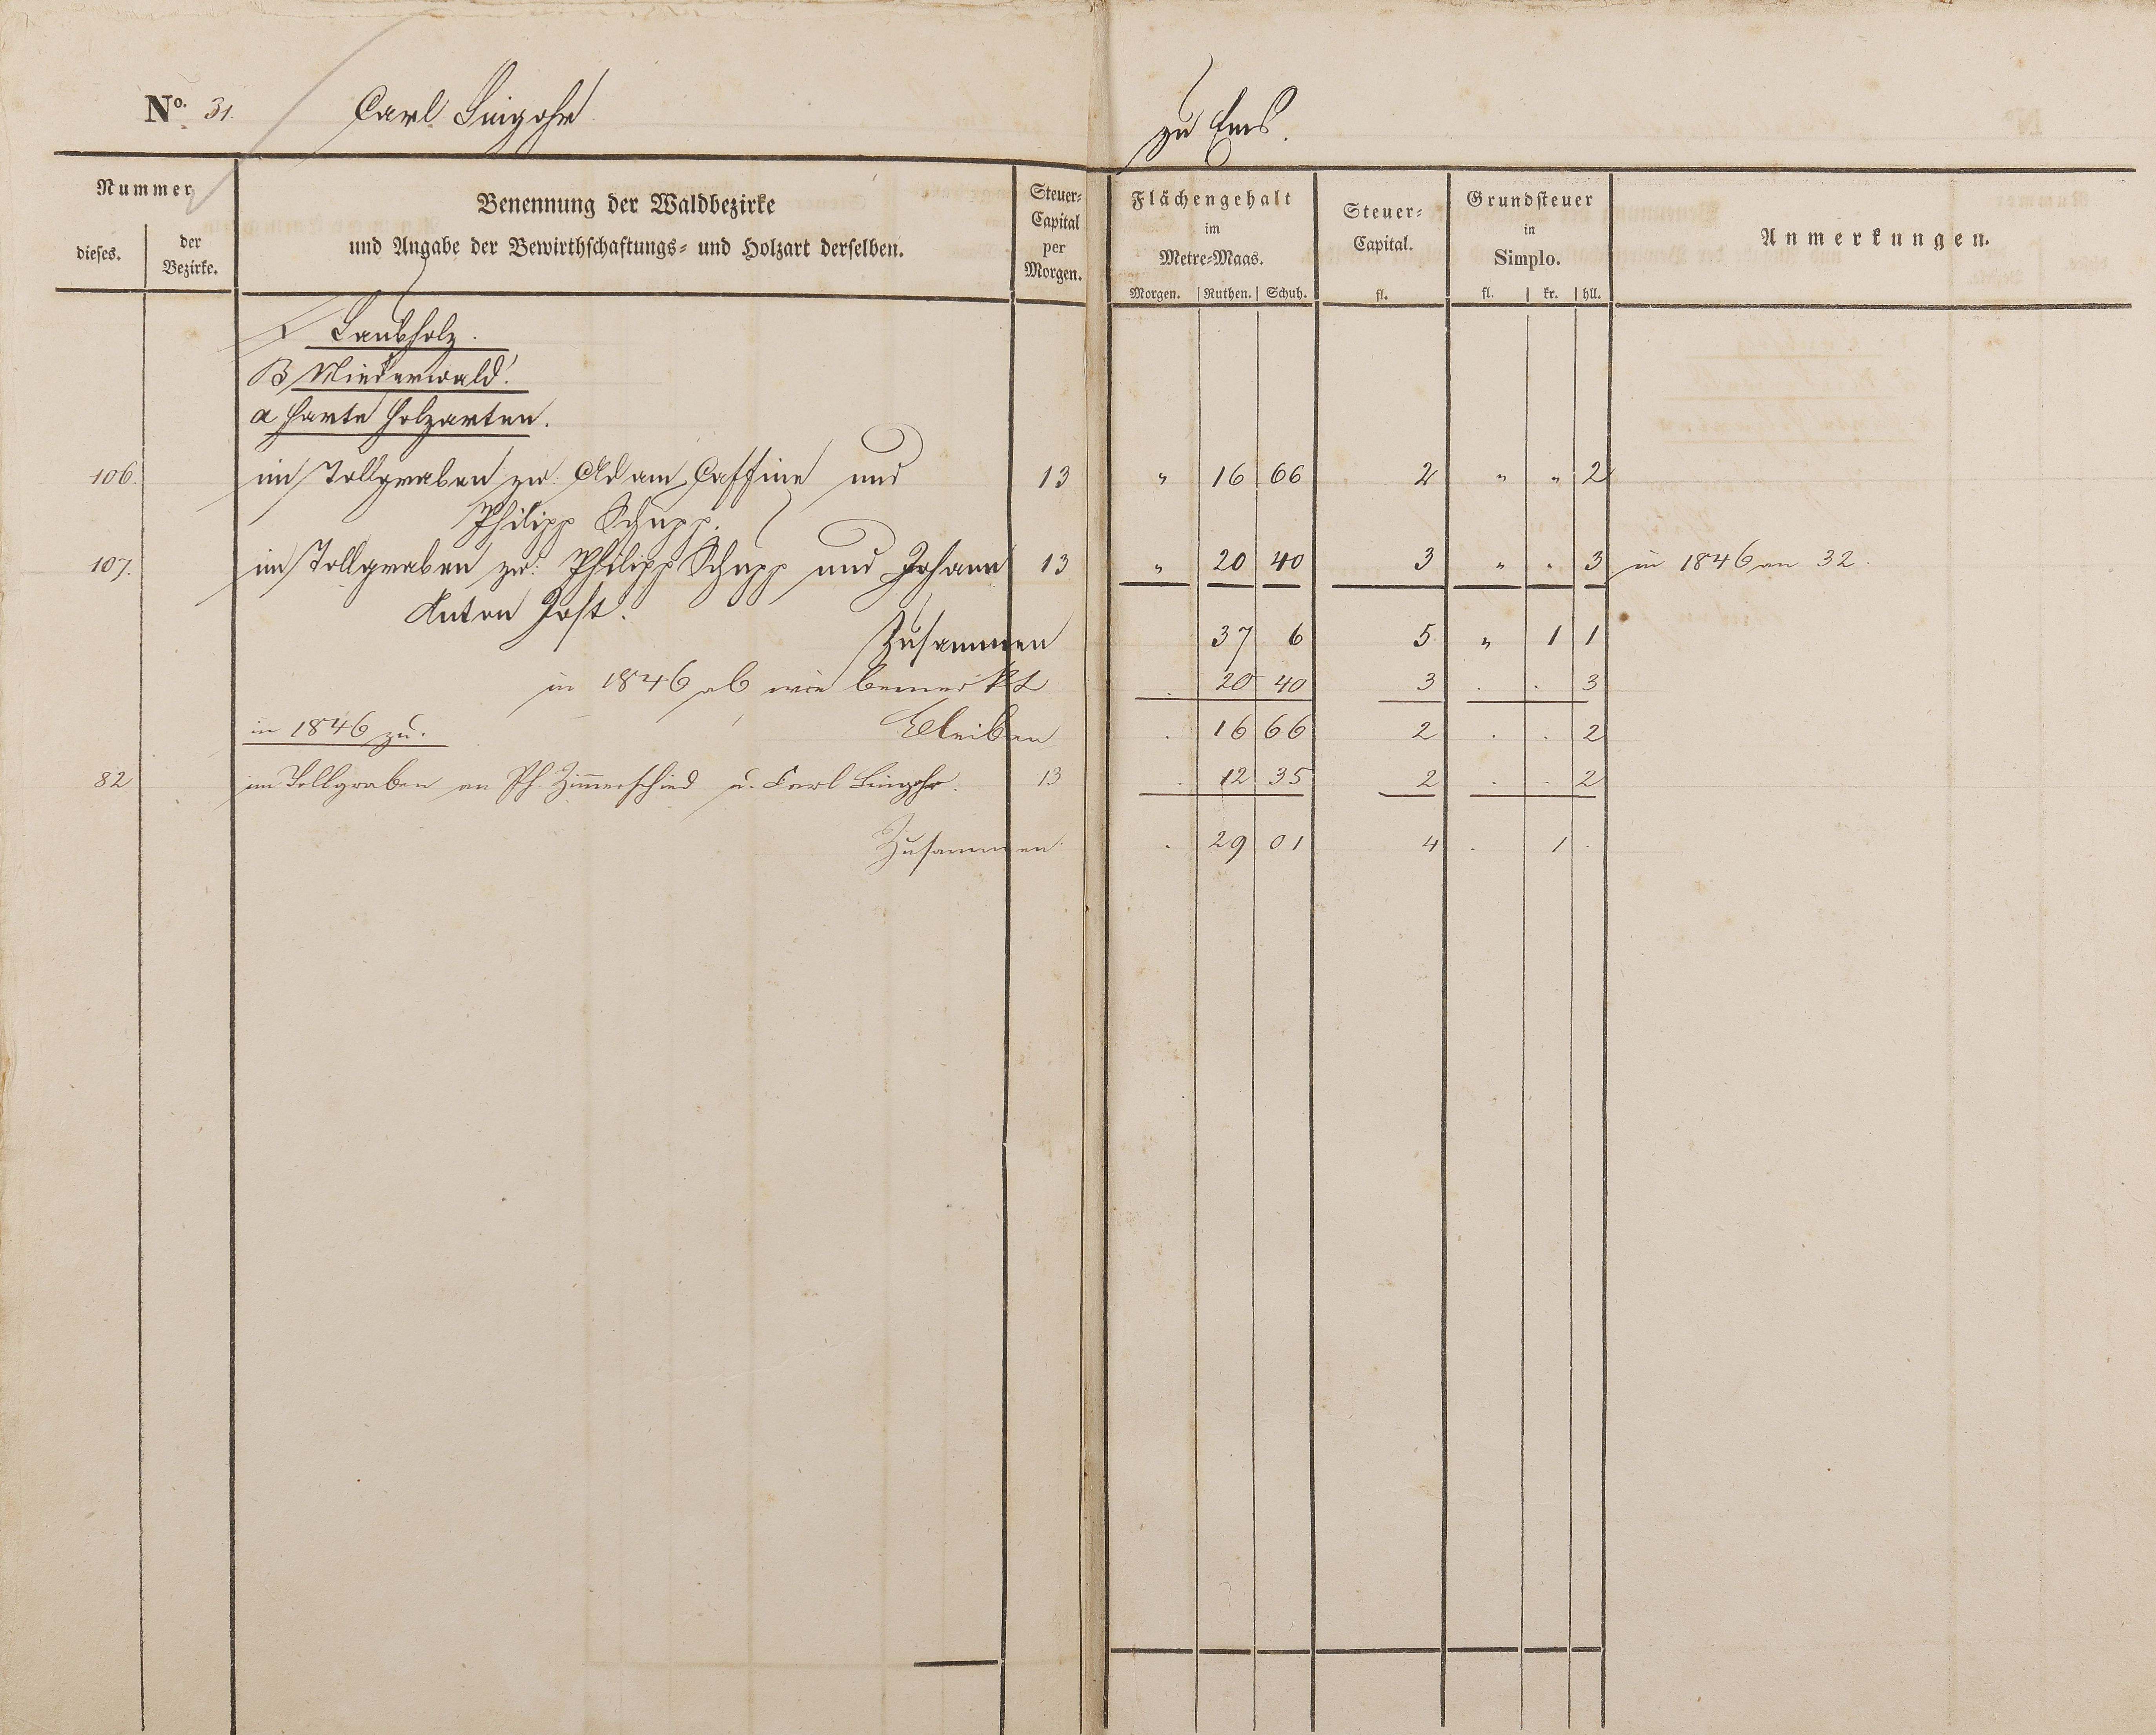 No. 31. Carl Linyohr zu Ems.
Nummer
dieses. der Bezirke.
Benennung der Waldbezirke
und Angabe der Bewirthschaftungs- und Holzart derselben.
Steuer-
Capital
per
Morgen.
Flächengehalt
im
Metre-Maas.
Morgen. Ruthen. Schuh.
Steuer-
Capital.
fl.
Grundsteuer
in
Simplo.
fl. kr. hll.
Anmerkungen.
I Laubholz.
B Niederwald.
a harte Holzarten.
106. im Tollgraben zw: Adam Caffine und 13 " 16 66 2 " " 2
Philipp Schupp.
107. im Tollgraben zw: Philipp Schupp und Johann 13 " 20 40 3 " " 3 in 1846 an 32.
Anton Jost.
Zusammen 37 6 5 " 1 1
in 1846 ab wie bemerkt . 20 40 3 . . 3
Bleiben . 16 66 2 . . 2
in 1846 zu.
82 im Tollgraben an Ph. Zimmerschied u. Carl Linyohr. 13 . 12 35 2 . . 2
Zusammen . 29 01 4 . 1 .